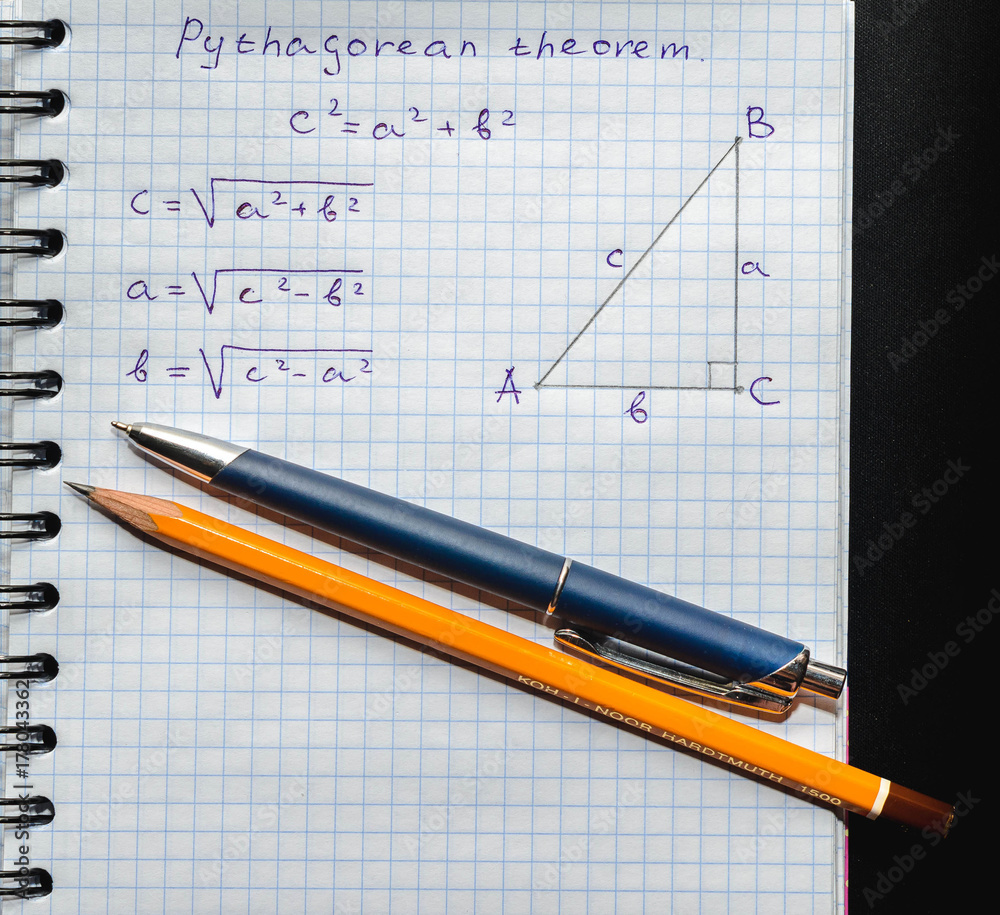 Pythagorean theorem.
c² = a² + b²
c = √(a² + b²)
B
a = √(c² - b²)
c
a
b = √(c² - a²)
A
C
b
KOH-I-NOOR HARDTMUTH 1500
Adobe Stock | 178043362
Adobe Stock